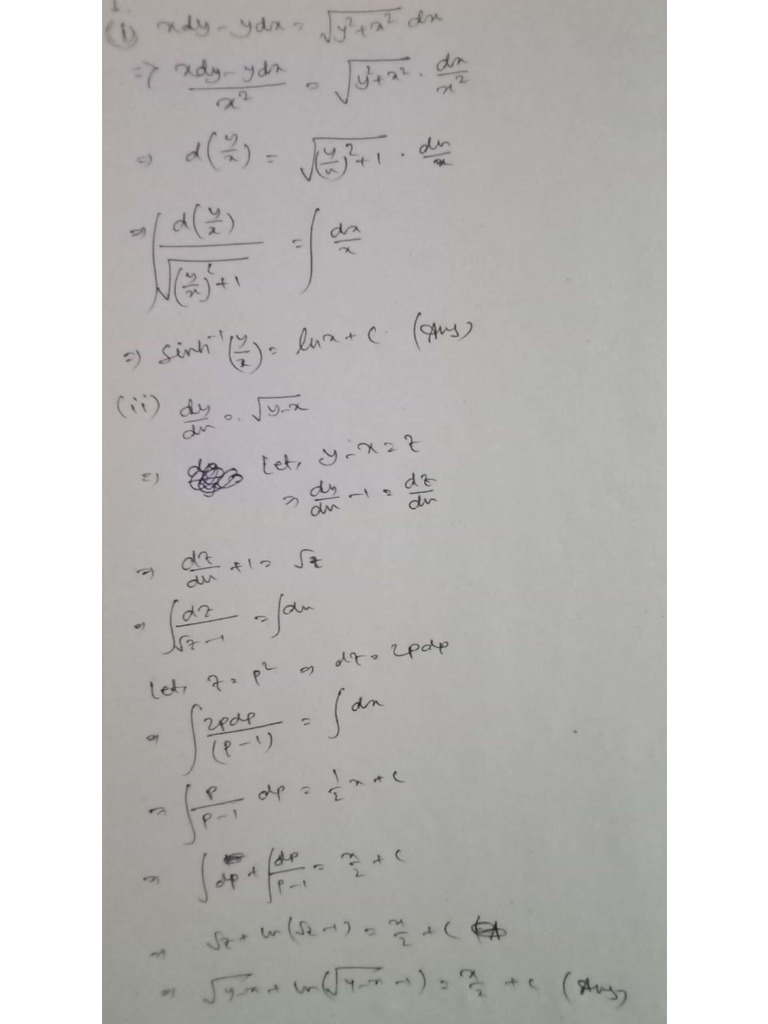 1.
(i) xdy - ydx = √(y²+x²) dx
=> (xdy - ydx)/x² = √(y²+x²) · dx/x²
=> d(y/x) = √((y/x)²+1) · dx/x
=> ∫ d(y/x)/√((y/x)²+1) = ∫ dx/x
=> sinh⁻¹(y/x) = lnx + C. (Ans)
(ii) dy/dx = √(y-x)
=> Let, y-x = z
=> dy/dx - 1 = dz/dx
=> dz/dx + 1 = √z
=> ∫ dz/(√z-1) = ∫dx
Let, z = p² => dz = 2pdp
=> ∫ 2pdp/(p-1) = ∫ dx
=> ∫ p/(p-1) dp = 1/2 x + C
=> ∫ dp + ∫ dp/(p-1) = x/2 + C
=> √z + ln(√z-1) = x/2 + C
=> √(y-x) + ln(√(y-x) -1) = x/2 + C (Ans)